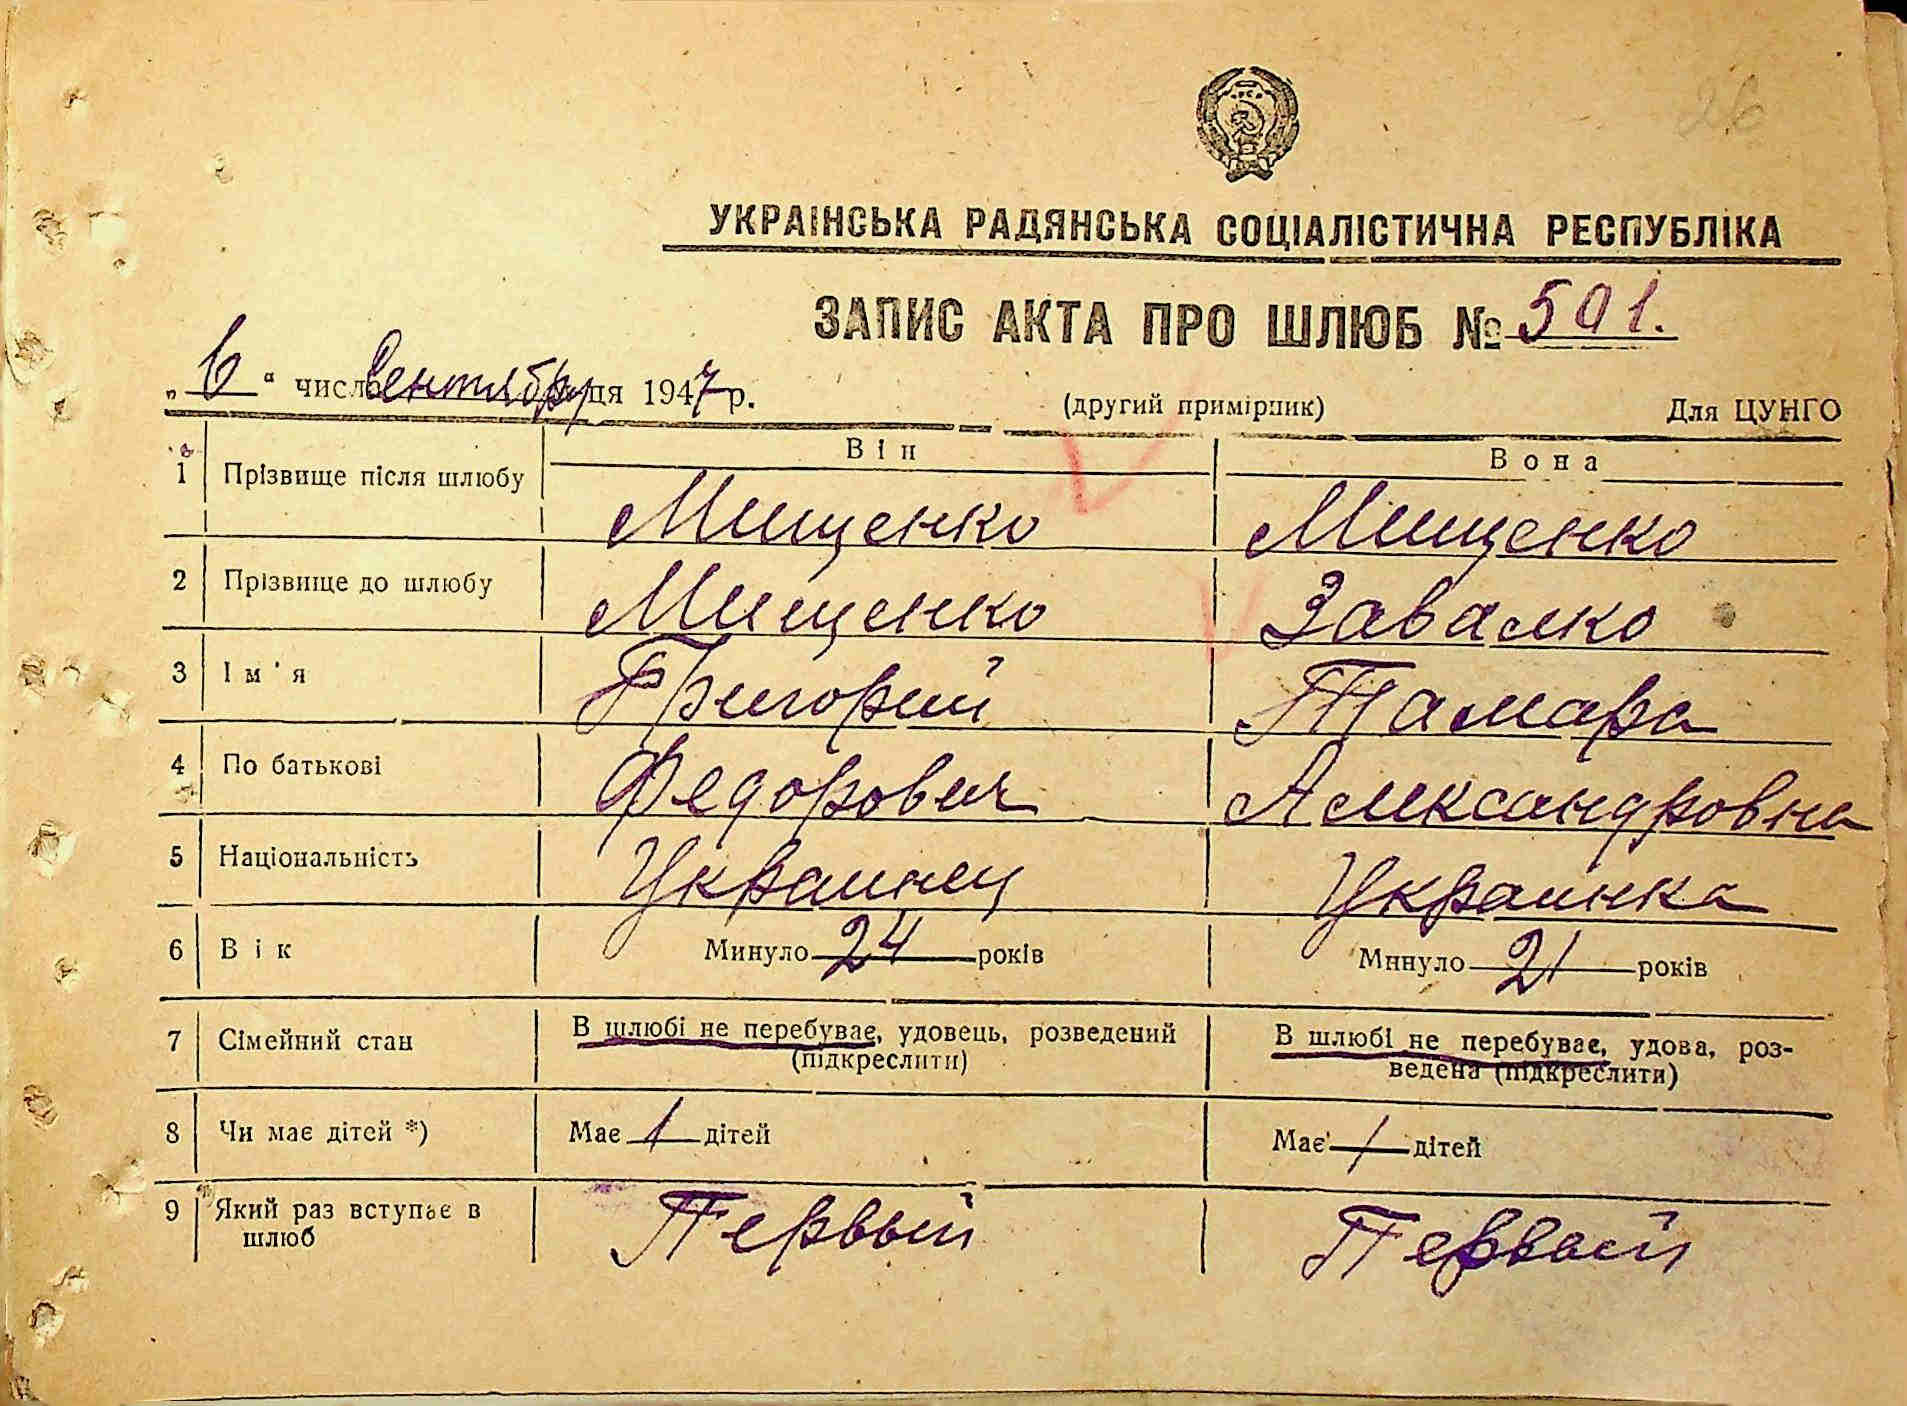 26
УКРАЇНСЬКА РАДЯНСЬКА СОЦІАЛІСТИЧНА РЕСПУБЛІКА
ЗАПИС АКТА ПРО ШЛЮБ № 501.
„6“ число Сентября місяця 1947 р. (другий примірник) Для ЦУНГО
Він Вона
1 Прізвище після шлюбу Мищенко Мищенко
2 Прізвище до шлюбу Мищенко Завалко
3 Ім'я Григорий Тамара
4 По батькові Федорович Александровна
5 Національність Украинец Украинка
6 Вік Минуло 24 років Минуло 21 років
7 Сімейний стан В шлюбі не перебуває, удовець, розведений (підкреслити) В шлюбі не перебуває, удова, роз-
ведена (підкреслити)
8 Чи має дітей *) Має 1 дітей Має 1 дітей
9 Який раз вступає в шлюб Первый Первый